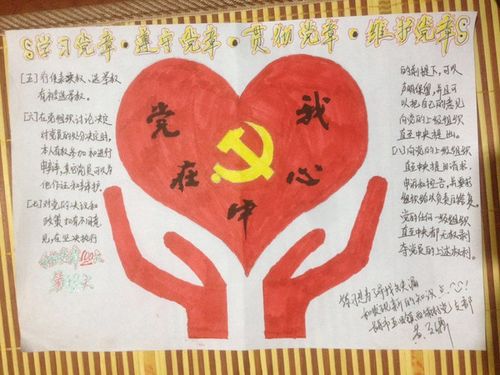 学习党章·遵守党章·贯彻党章·维护党章
[五]行使表决权、选举权
有被选举权。
[六]在党组织讨论决定
对党员的党纪处分
本人有权参加和进行
申辩，其他党员可以为
他作证和辩护。
[七]对党的决议和
政策如有不同意
见，在坚决执行
的前提下，可以
声明保留，并且可
以把自己的意见
向党的上级组织
直至中央提出。
[八]向党的上级组织
直至中央提出请求、
申诉和控告，并要求
组织给以负责的答复。
党的任何一级组织
直至中央都无权剥
夺党员的上述权利。
党
在
我
心
中
100天